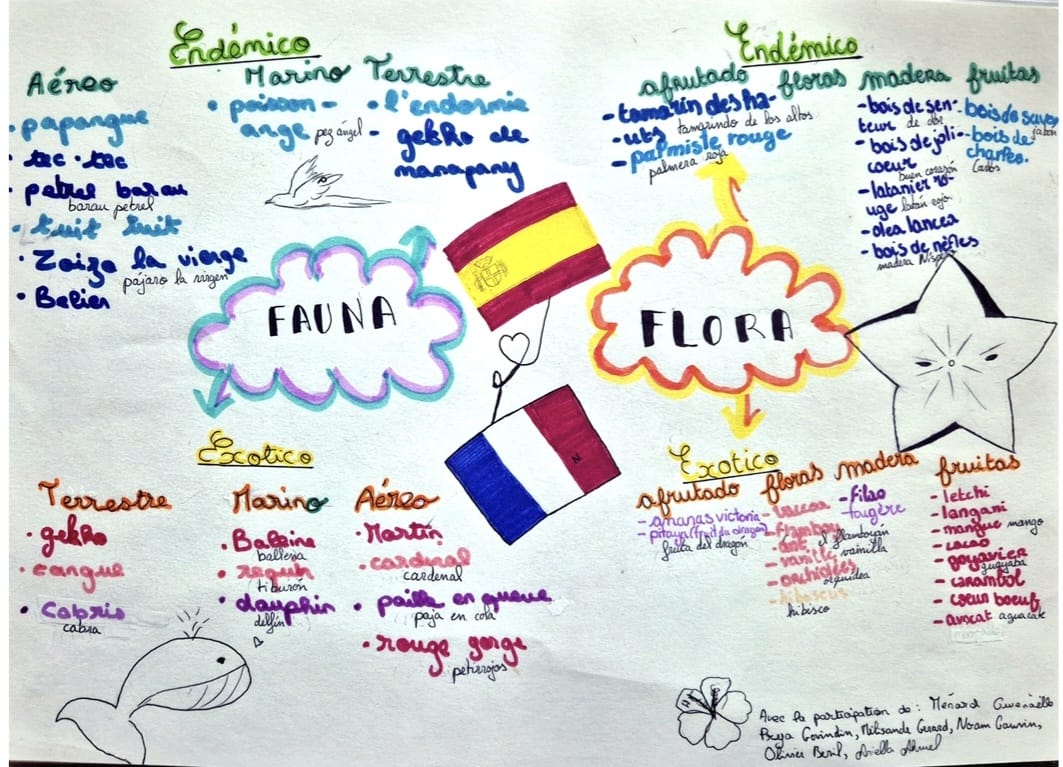 Endémico
Aéreo
- papangue
- tec-tec
- petrel barau
barau petrel
- tuit tuit
- Zoizo la vierge
pájaro la virgen
- Belier
Marino
- poisson-
ange pez ángel
Terrestre
- l'endormie
- gekko de
manapany
FAUNA
Exotico
Terrestre
- gekko
- tangue
- Cabris
cabra
Marino
- Baleine
ballena
- requin
tiburón
- dauphin
delfín
Aéreo
- Martin
- cardinal
cardenal
- paille en queue
paja en cola
- rouge gorge
petirrojos
Endémico
afrutado
- tamarin des ha-
uts tamarindo de los altos
- palmiste rouge
palmera roja
floras
madera
- bois de sen-
teur de olor
- bois de joli-
coeur
buen corazón
- latanier ro-
uge latán rojo
- olea lancea
- bois de nèfles
madera Níspero
fruitas
- bois de savon
jabón
- bois de
charles.
Carlos
FLORA
Exotico
afrutado
- ananas victoria
- pitaya (fruit du dragon)
fruta del dragon
floras
- vacoa
- flamboy-
ant el flamboyán
- vanille vainilla
- orchidées
orquidea
- hibiscus
hibisco
madera
- filao
- fougère
fruitas
- letchi
- longani
- mangue mango
- cacao
- goyavier
guayaba
- carambol
- coeur boeuf
- avocat aguacate
Avec la participation de : Ménard Gwenaëlle
Priya Govindin, Mélisande Gerard, Noam Gauvin,
Olivier Beril,